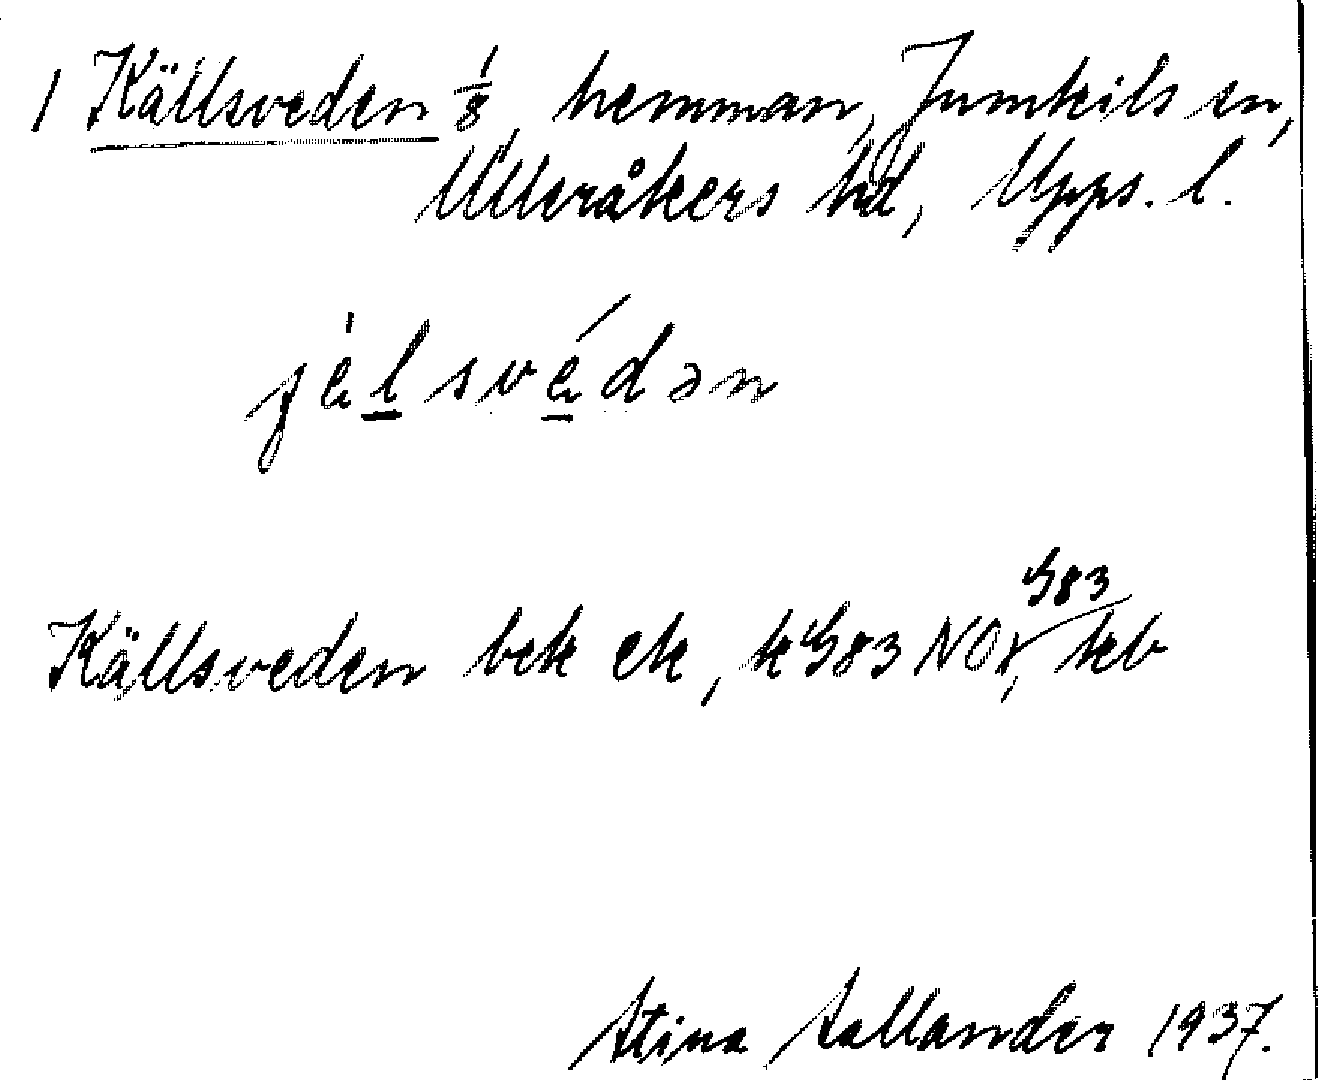 1 Källsveden 1/8 hemman, Jumkils sn,
Ulleråkers hd, Upps. l.
jélsvédən
983
Källsveden bek ek, k 983 NOr, kb
Stina Sallander 1937.